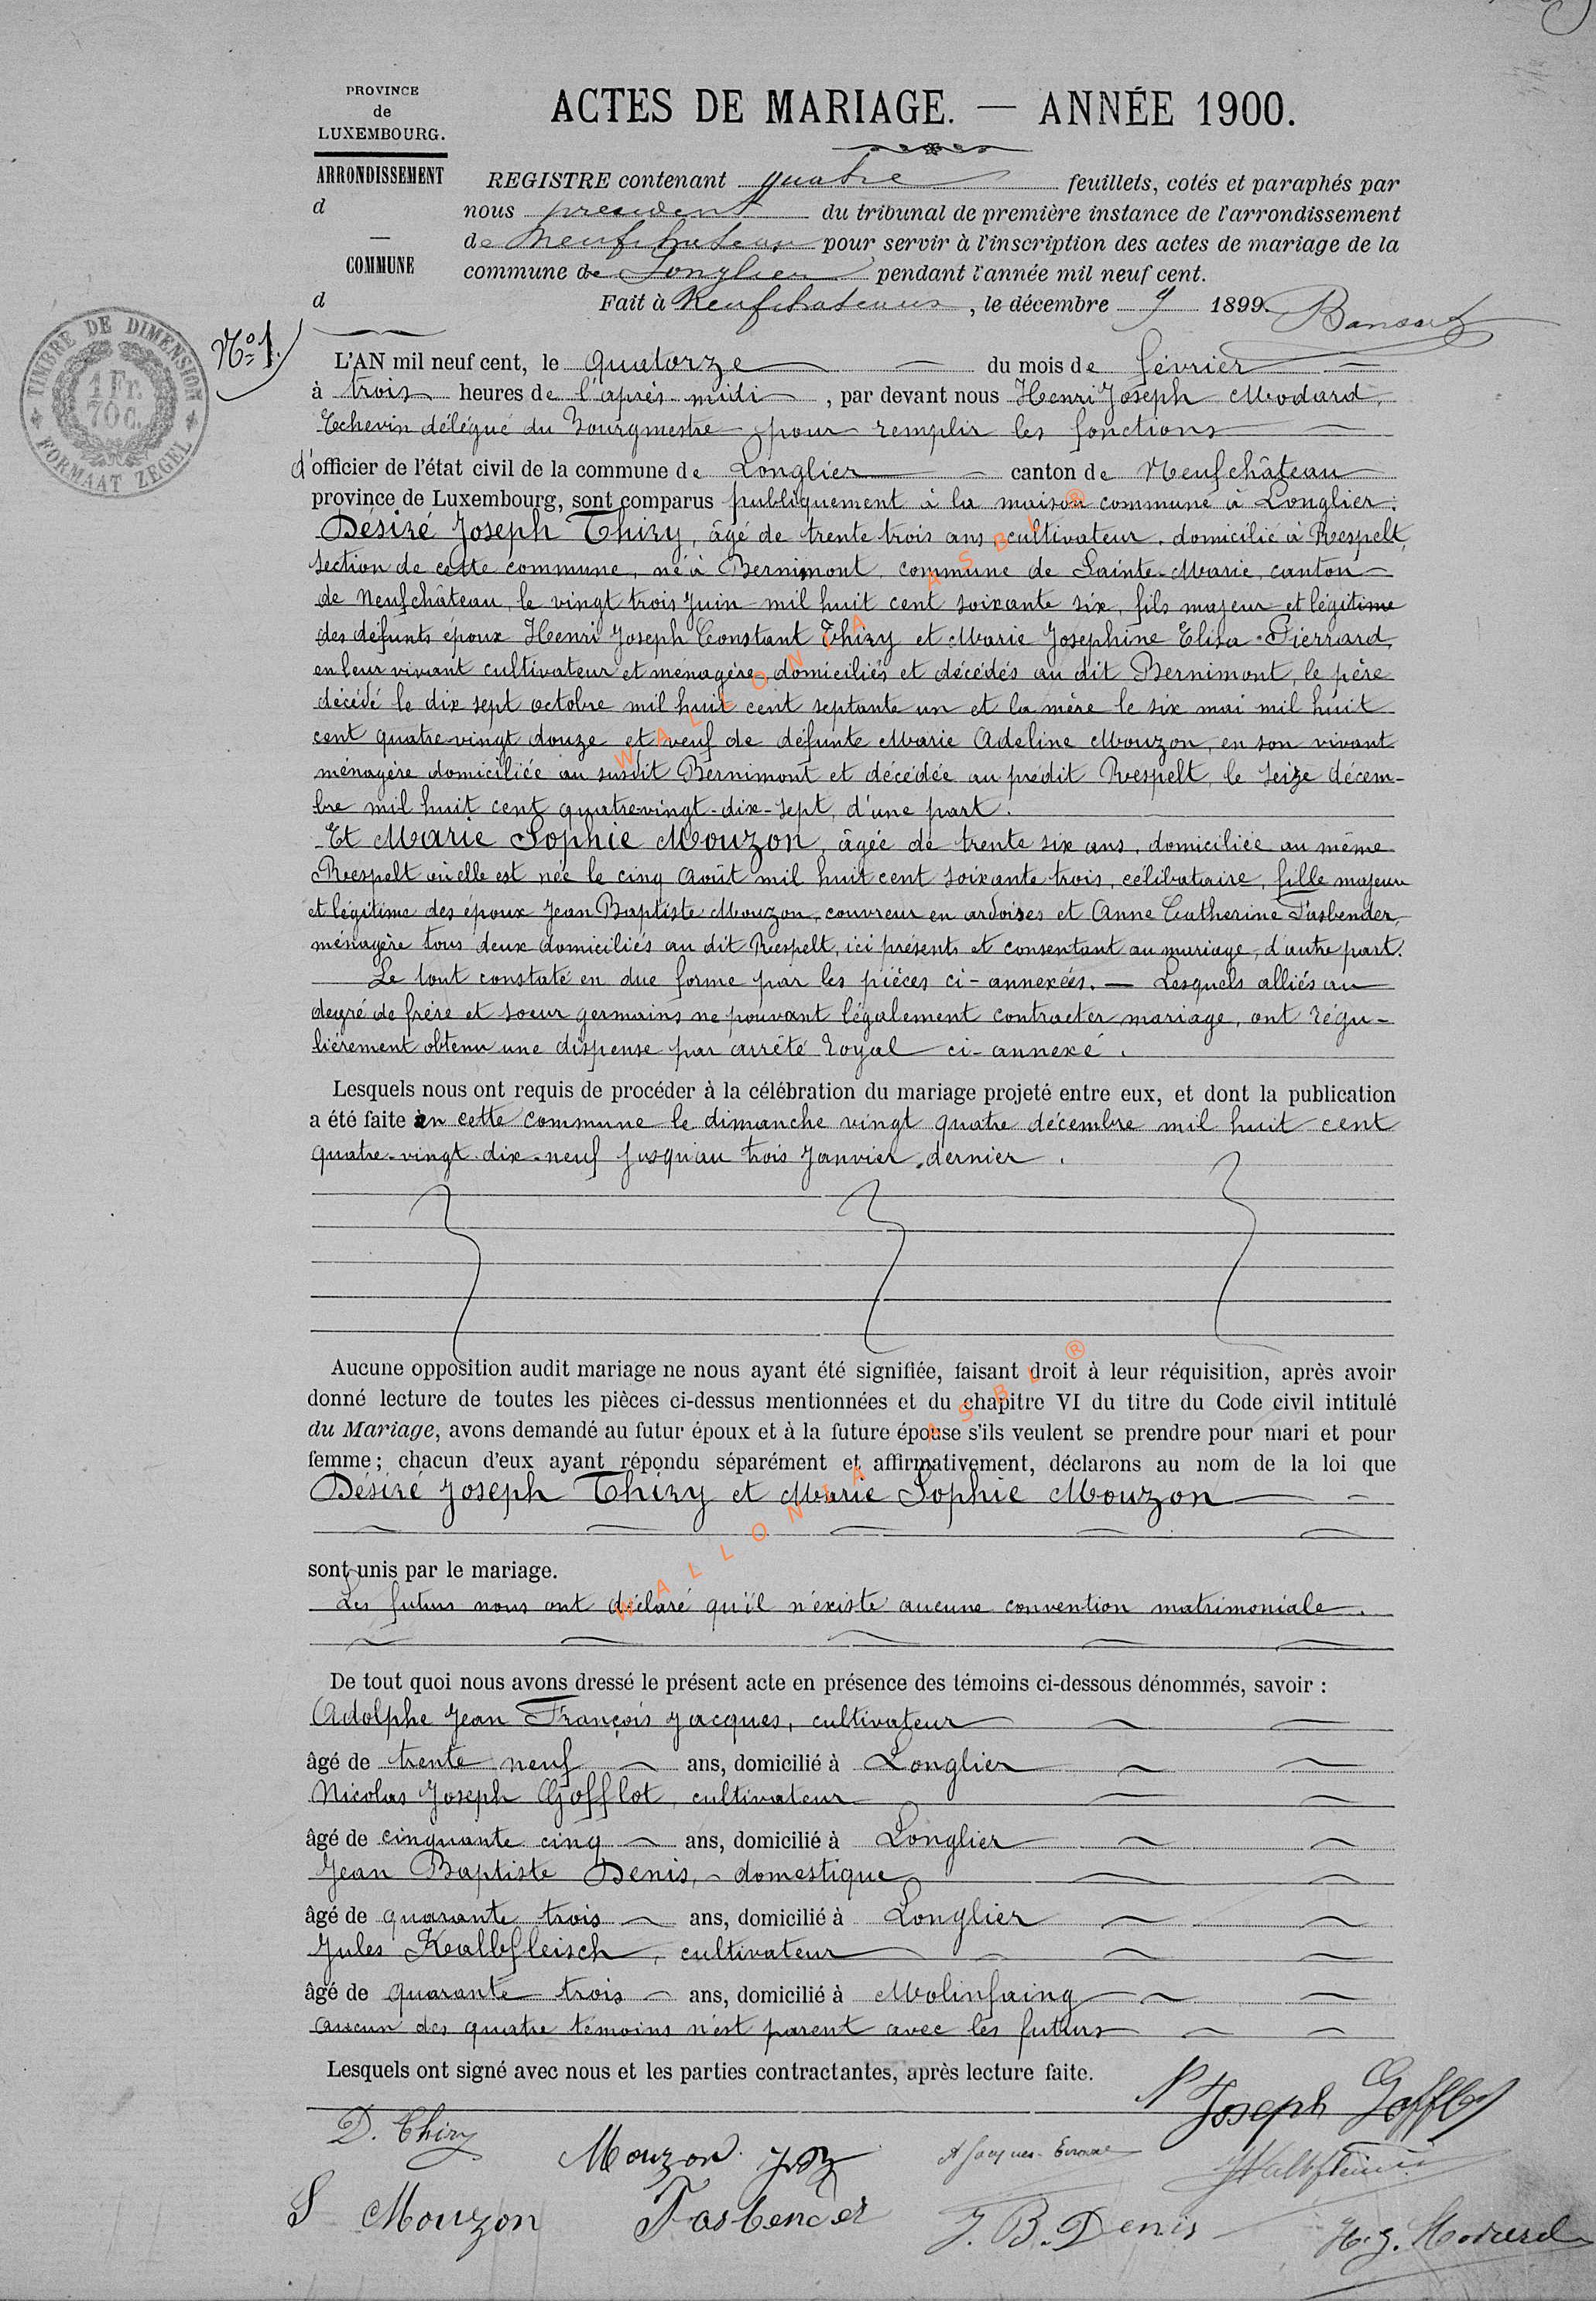 PROVINCE
de
LUXEMBOURG.
ARRONDISSEMENT
d
—
COMMUNE
d
ACTES DE MARIAGE. — ANNÉE 1900.
REGISTRE contenant quatre feuillets, cotés et paraphés par
nous president du tribunal de première instance de l'arrondissement
de Neufchateau pour servir à l'inscription des actes de mariage de la
commune de Longlier pendant l'année mil neuf cent.
Fait à Neufchateau, le décembre 9 1899.
TIMBRE DE DIMENSION
1 Fr.
70 C.
FORMAAT ZEGEL
N° 1.
L'AN mil neuf cent, le quatorze du mois de février
à trois heures de l'après-midi, par devant nous Henri Joseph Modard,
Echevin délégué du Bourgmestre pour remplir les fonctions
d'officier de l'état civil de la commune de Longlier canton de Neufchâteau
province de Luxembourg, sont comparus publiquement à la maison commune à Longlier:
Désiré Joseph Thiry, âgé de trente trois ans, cultivateur, domicilié à Respelt,
section de cette commune, né à Bernimont, commune de Sainte-Marie, canton
de Neufchâteau, le vingt trois Juin mil huit cent soixante six, fils majeur et légitime
des défunts époux Henri Joseph Constant Thiry et Marie Josephine Elisa Pierrard,
en leur vivant cultivateur et ménagère domiciliés et décédés au dit Bernimont, le père
décédé le dix sept octobre mil huit cent septante un et la mère le six mai mil huit
cent quatre vingt douze et veuf de défunte Marie Adeline Mouzon, en son vivant
ménagère domiciliée au susdit Bernimont et décédée au prédit Respelt, le seize décem-
bre mil huit cent quatre-vingt-dix-sept, d'une part.
Et Marie Sophie Mouzon, âgée de trente six ans, domiciliée au même
Respelt où elle est née le cinq Août mil huit cent soixante trois, célibataire, fille majeure
et légitime des époux Jean Baptiste Mouzon, couvreur en ardoises et Anne Catherine Fasbender,
ménagère tous deux domiciliés au dit Respelt, ici présents et consentant au mariage, d'autre part.
Le tout constaté en due forme par les pièces ci-annexées. — Lesquels alliés au
degré de frère et soeur germains ne pouvant légalement contracter mariage, ont régu-
lièrement obtenu une dispense par arrêté Royal ci-annexé.
Lesquels nous ont requis de procéder à la célébration du mariage projeté entre eux, et dont la publication
a été faite en cette commune le dimanche vingt quatre décembre mil huit cent
quatre-vingt dix-neuf jusqu'au trois Janvier dernier.
Aucune opposition audit mariage ne nous ayant été signifiée, faisant droit à leur réquisition, après avoir
donné lecture de toutes les pièces ci-dessus mentionnées et du chapitre VI du titre du Code civil intitulé
du Mariage, avons demandé au futur époux et à la future épouse s'ils veulent se prendre pour mari et pour
femme; chacun d'eux ayant répondu séparément et affirmativement, déclarons au nom de la loi que
Désiré Joseph Thiry et Marie Sophie Mouzon
sont unis par le mariage.
Les futurs nous ont déclaré qu'il n'existe aucune convention matrimoniale.
De tout quoi nous avons dressé le présent acte en présence des témoins ci-dessous dénommés, savoir :
Adolphe Jean François Jacques, cultivateur
âgé de trente neuf ans, domicilié à Longlier
Nicolas Joseph Gofflot, cultivateur
âgé de cinquante cinq ans, domicilié à Longlier
Jean Baptiste Denis, domestique
âgé de quarante trois ans, domicilié à Longlier
Jules Kalbfleisch, cultivateur
âgé de quarante trois ans, domicilié à Molinfaing
aucun des quatre témoins n'est parent avec les futurs
Lesquels ont signé avec nous et les parties contractantes, après lecture faite.
N Joseph Gofflot
D. Thiry
Mouzon
A Jacques
S Mouzon
Fasbender
J. B. Denis
H. J. Modard
WALLONIA ASBL ®
WALLONIA ASBL ®